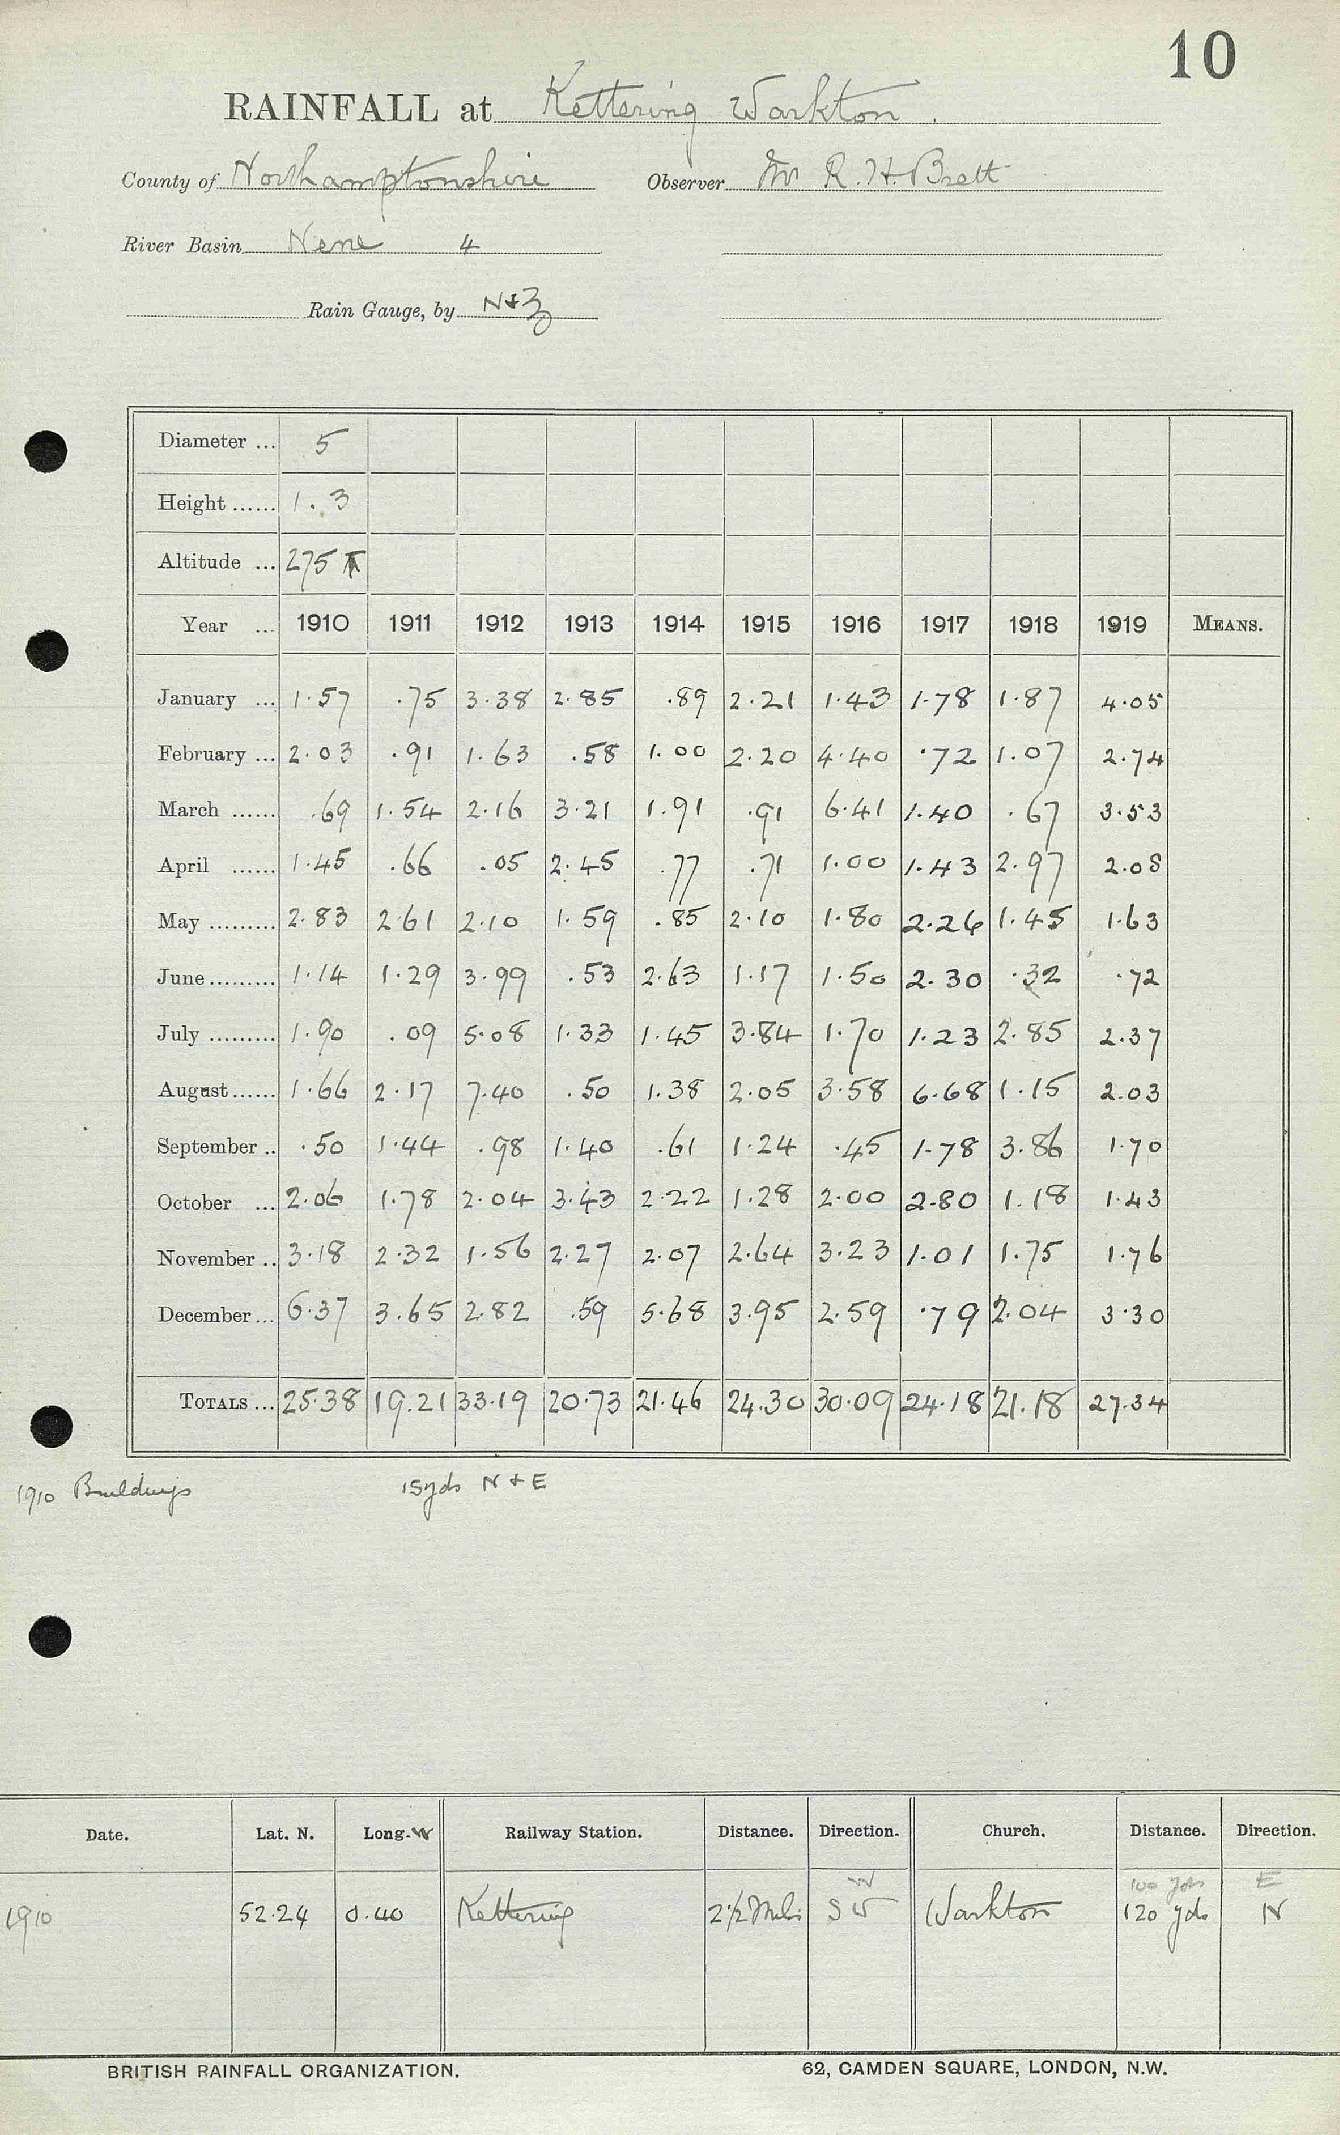 10
RAINFALL at Kettering Warkton.
County of Northamptonshire Observer Mr R. H. Brett
River Basin Nene 4
Rain Gauge, by N+Z
Diameter ... 5
Height ...... 1.3
Altitude ... 275 T
Year ... 1910 1911 1912 1913 1914 1915 1916 1917 1918 1919 MEANS.
January ... 1.57 .75 3.38 2.85 .89 2.21 1.43 1.78 1.87 4.05
February ... 2.03 .91 1.63 .58 1.00 2.20 4.40 .72 1.07 2.74
March ...... .69 1.54 2.16 3.21 1.91 .91 6.41 1.40 .67 3.53
April ...... 1.45 .66 .05 2.45 .77 .71 1.00 1.43 2.97 2.08
May ......... 2.83 2.61 2.10 1.59 .85 2.10 1.80 2.26 1.45 1.63
June ......... 1.14 1.29 3.99 .53 2.63 1.17 1.50 2.30 .32 .72
July ......... 1.90 .09 5.08 1.33 1.45 3.84 1.70 1.23 2.85 2.37
August ...... 1.66 2.17 7.40 .50 1.38 2.05 3.58 6.68 1.15 2.03
September .. .50 1.44 .98 1.40 .61 1.24 .45 1.78 3.86 1.70
October ... 2.06 1.78 2.04 3.43 2.22 1.28 2.00 2.80 1.18 1.43
November .. 3.18 2.32 1.56 2.27 2.07 2.64 3.23 1.01 1.75 1.76
December ... 6.37 3.65 2.82 .59 5.68 3.95 2.59 .79 2.04 3.30
TOTALS ... 25.38 19.21 33.19 20.73 21.46 24.30 30.09 24.18 21.18 27.34
1910 Buildings 15yds N + E
Date. Lat. N. Long. W Railway Station. Distance. Direction. Church. Distance. Direction.
W 100 yds E
1910 52.24 0.40 Kettering 2 1/2 Miles SW Warkton 120 yds N
BRITISH RAINFALL ORGANIZATION. 62, CAMDEN SQUARE, LONDON, N.W.